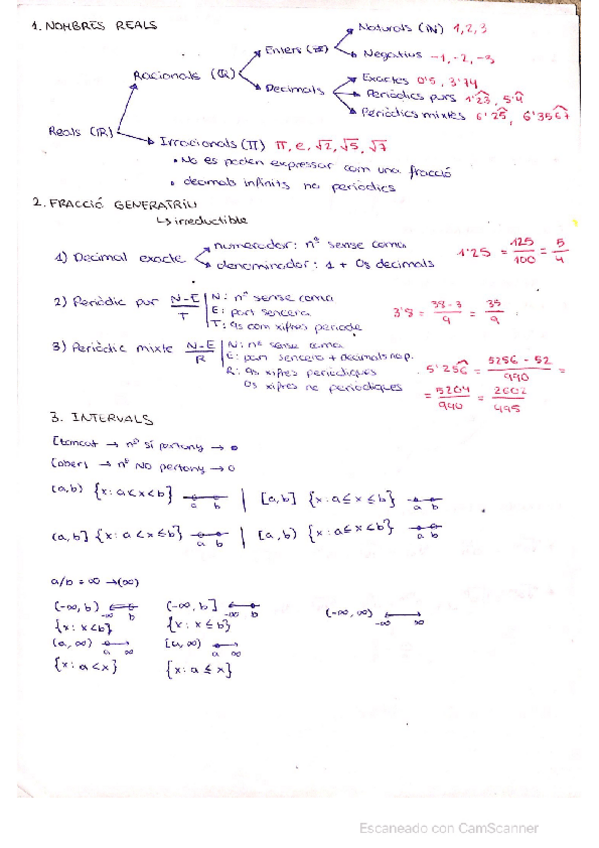 1. NOMBRES REALS
Naturals (IN) 1, 2, 3
Enters (Z)
Negatius -1, -2, -3
Racionals (Q)
Exactes 0'5, 3'74
Decimals
Periòdics purs 1'23, 5'4
Periòdics mixtes 6'25, 6'3567
Reals (IR)
Irracionals (II) π, e, √2, √5, √7
• No es poden expressar com una fracció
• decimals infinits no periòdics
2. FRACCIÓ GENERATRIU
↳ irreductible
numerador: nº sense coma
1) Decimal exacte
denominador: 1 + 0s decimals
1'25 = 125/100 = 5/4
2) Periòdic pur N-E/T
N: nº sense coma
E: part sencera
T: 9s com xifres periode
3'8 = 38-3/9 = 35/9
3) Periòdic mixte N-E/R
N: nº sense coma
E: part sencera + decimals no p.
R: 9s xifres periòdiques
0s xifres no periòdiques
5'256 = 5256-52/990 =
= 5204/990 = 2602/495
3. INTERVALS
[tancat → nº SÍ pertany → •
(obert → nº NO pertany → o
(a,b) {x: a<x<b} a b | [a,b] {x: a≤x≤b} a b
(a,b] {x: a<x≤b} a b | [a,b) {x: a≤x<b} a b
a/b = ∞ → (∞)
(-∞, b) -∞ b (-∞, b] -∞ b (-∞, ∞) -∞ ∞
{x: x<b} {x: x≤b}
(a, ∞) a ∞ [a, ∞) a ∞
{x: a<x} {x: a≤x}
Escaneado con CamScanner